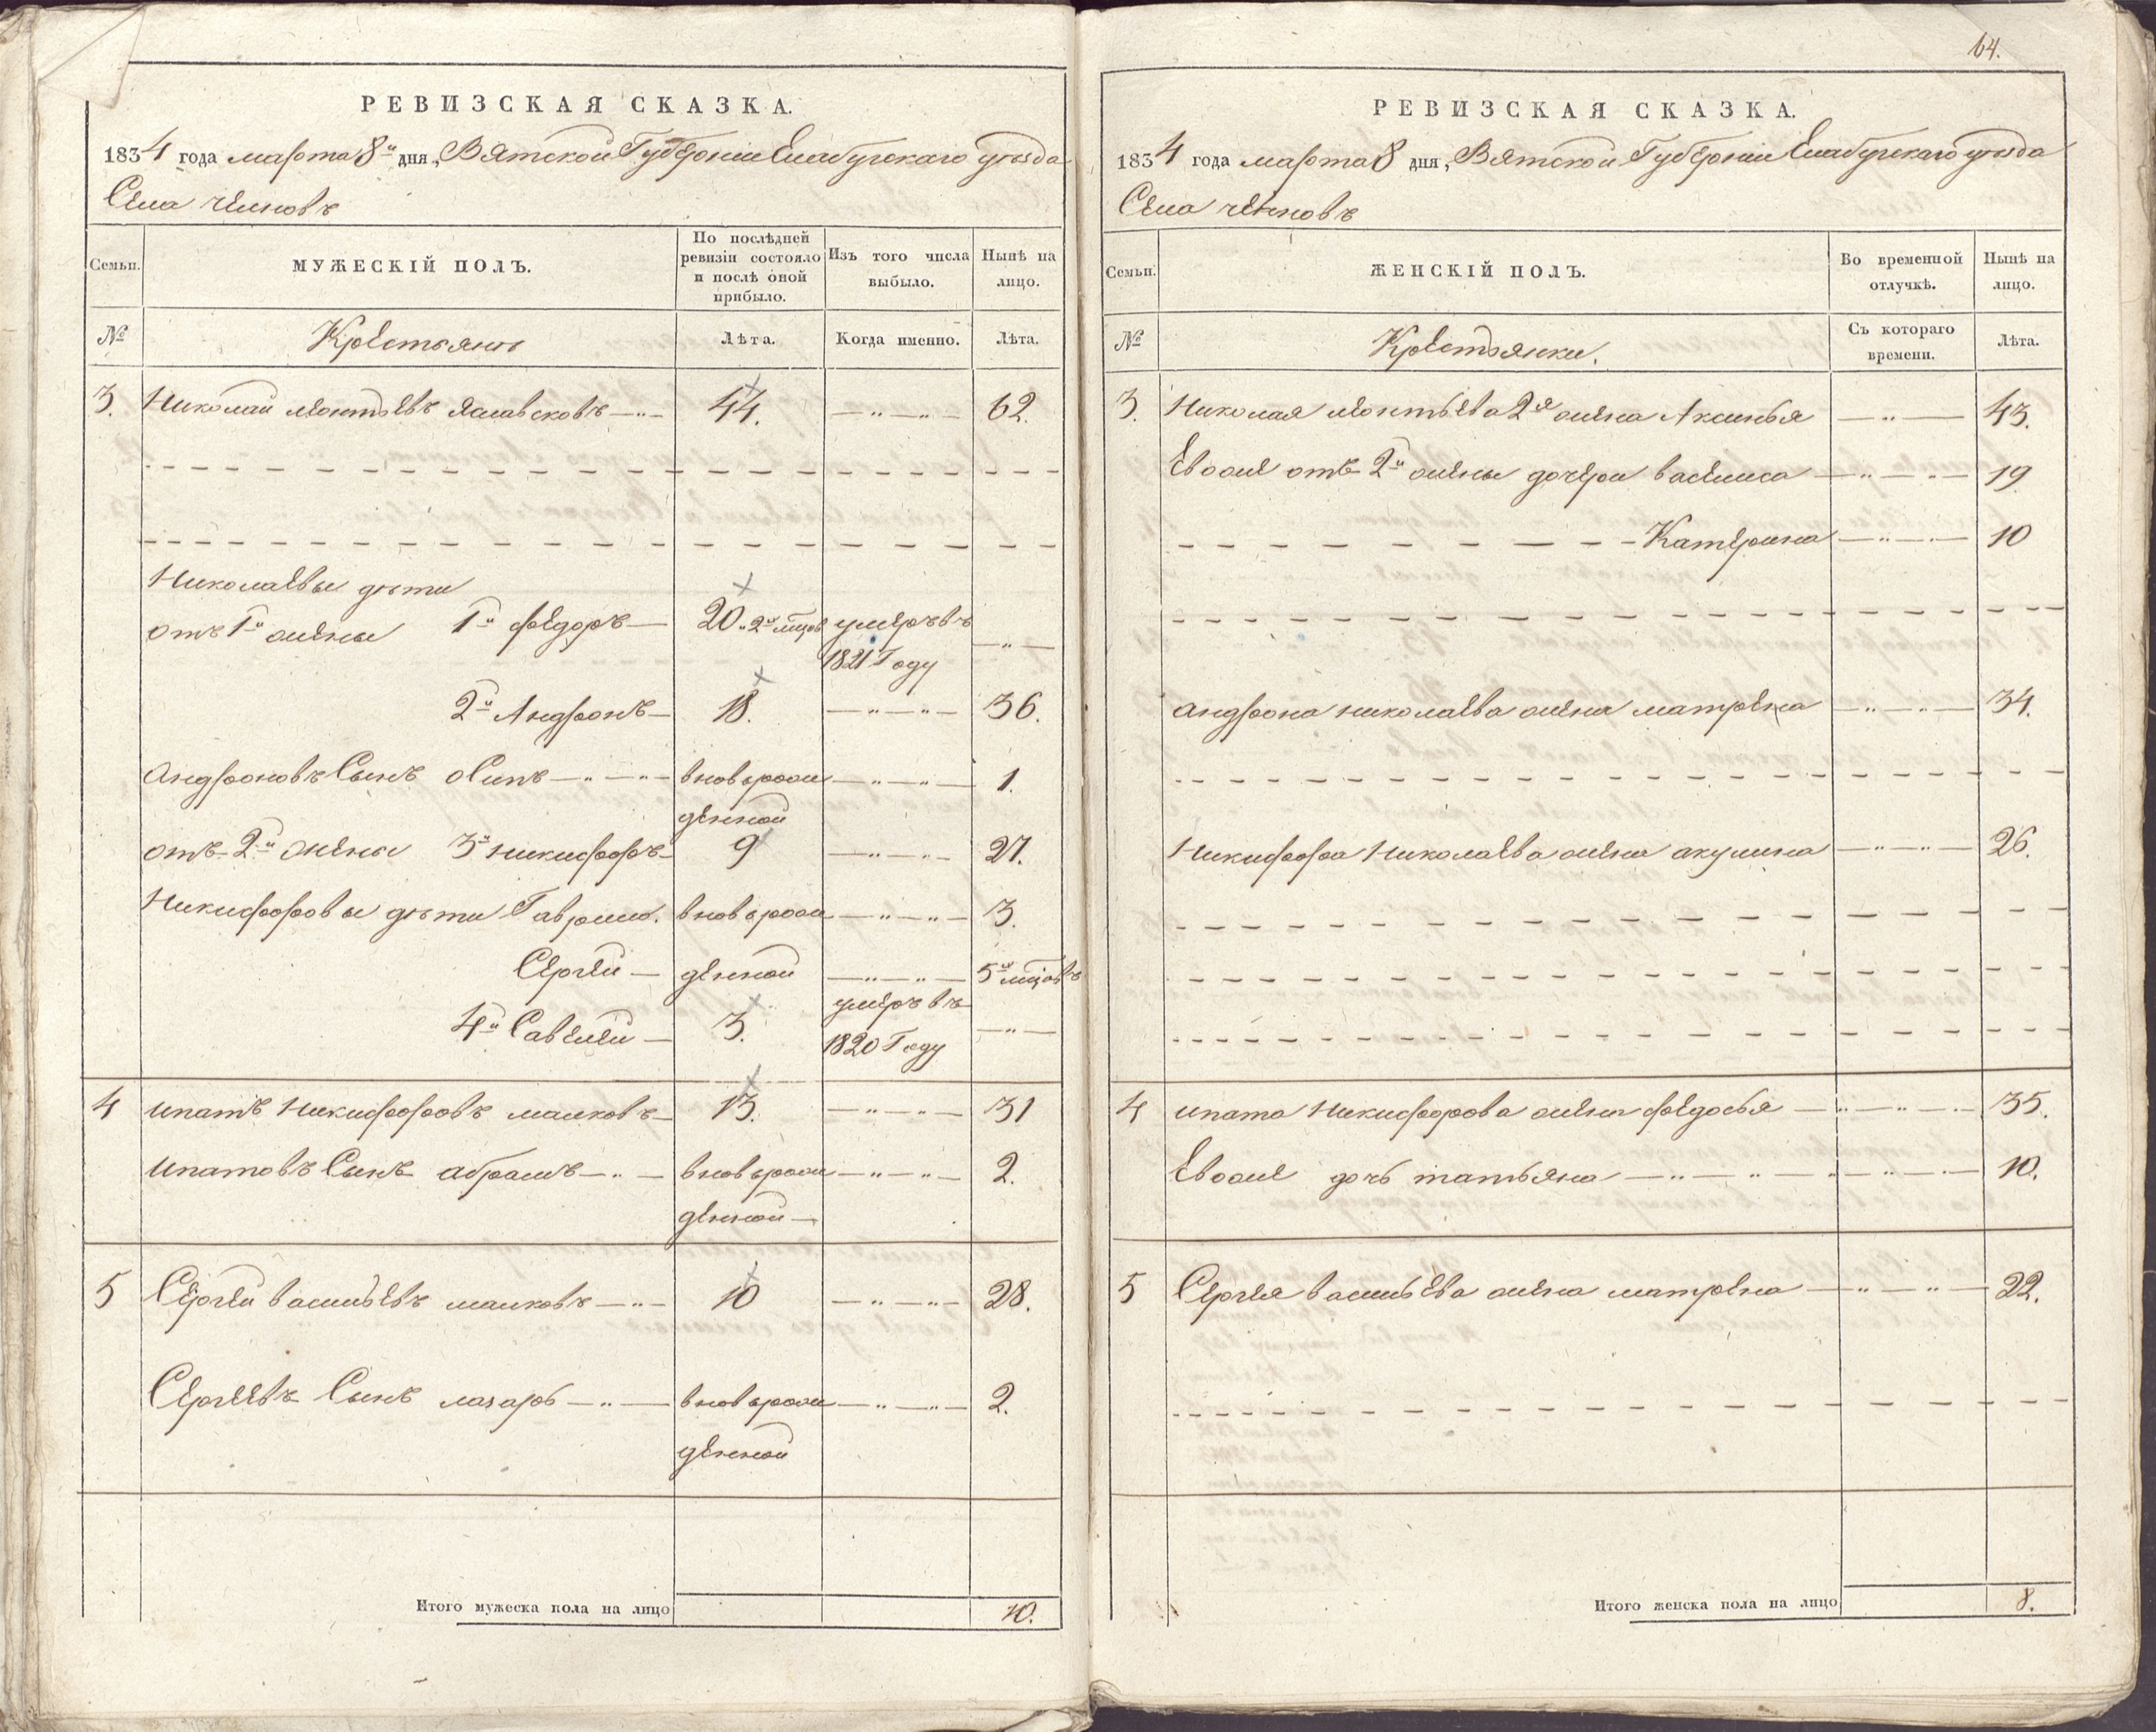 РЕВИЗСКАЯ СКАЗКА.
1834 года марта 8го дня, Вятской Губернии Елабугскаго уезда
Села челновъ
Семьи.
МУЖЕСКІЙ ПОЛЪ.
По послѣдней ревизіи состояло и послѣ оной прибыло.
Изъ того числа выбыло.
Нынѣ на лицо.
№
Крестьянъ
Лѣта.
Когда именно.
Лѣта.
3. Николай леонтьевъ 44. 62.
Николаевы дѣти
отъ 1й жены 1й федоръ 20. 2 умеръ въ
1821 Году
2й Андронъ 18. 36.
андроновъ Сынъ осипъ вновьрож 1.
денной
отъ 2й жены 3й никифоръ 9 27.
Никифоровы дѣти Гаврило. вновьрож 3.
Сергей денной 5 мцовъ
4й Савелей 3. умеръ въ
1820 Году
4 ипатъ Никифоровъ малковъ 13. 31
ипатовъ Сынъ абрамъ вновьрож 2.
денной
5 Сергей васильевъ малковъ 10 28.
Сергеевъ Сынъ лазарь вновьрож 2.
денной
Итого мужеска пола на лицо 10.
64.
РЕВИЗСКАЯ СКАЗКА.
1834 года марта 8 дня, Вятской Губернии Елабугскаго уезда
Села челновъ
Семьи.
ЖЕНСКІЙ ПОЛЪ.
Во временной отлучкѣ.
Нынѣ на лицо.
№
Крестьянки.
Съ котораго времени.
Лѣта.
3. Николая леонтьева 2я жена Аксинья 43.
Евоже отъ 2й жены дочери василиса 19
Катерина 10
андрона николаева жена матрена 34.
Никифора Николаева жена акулина 26.
4 ипата Никифорова жена федосья 35.
Евоже дочь татьяна 10.
5 Сергея васильева жена матрена 22.
Итого женска пола на лицо 8.